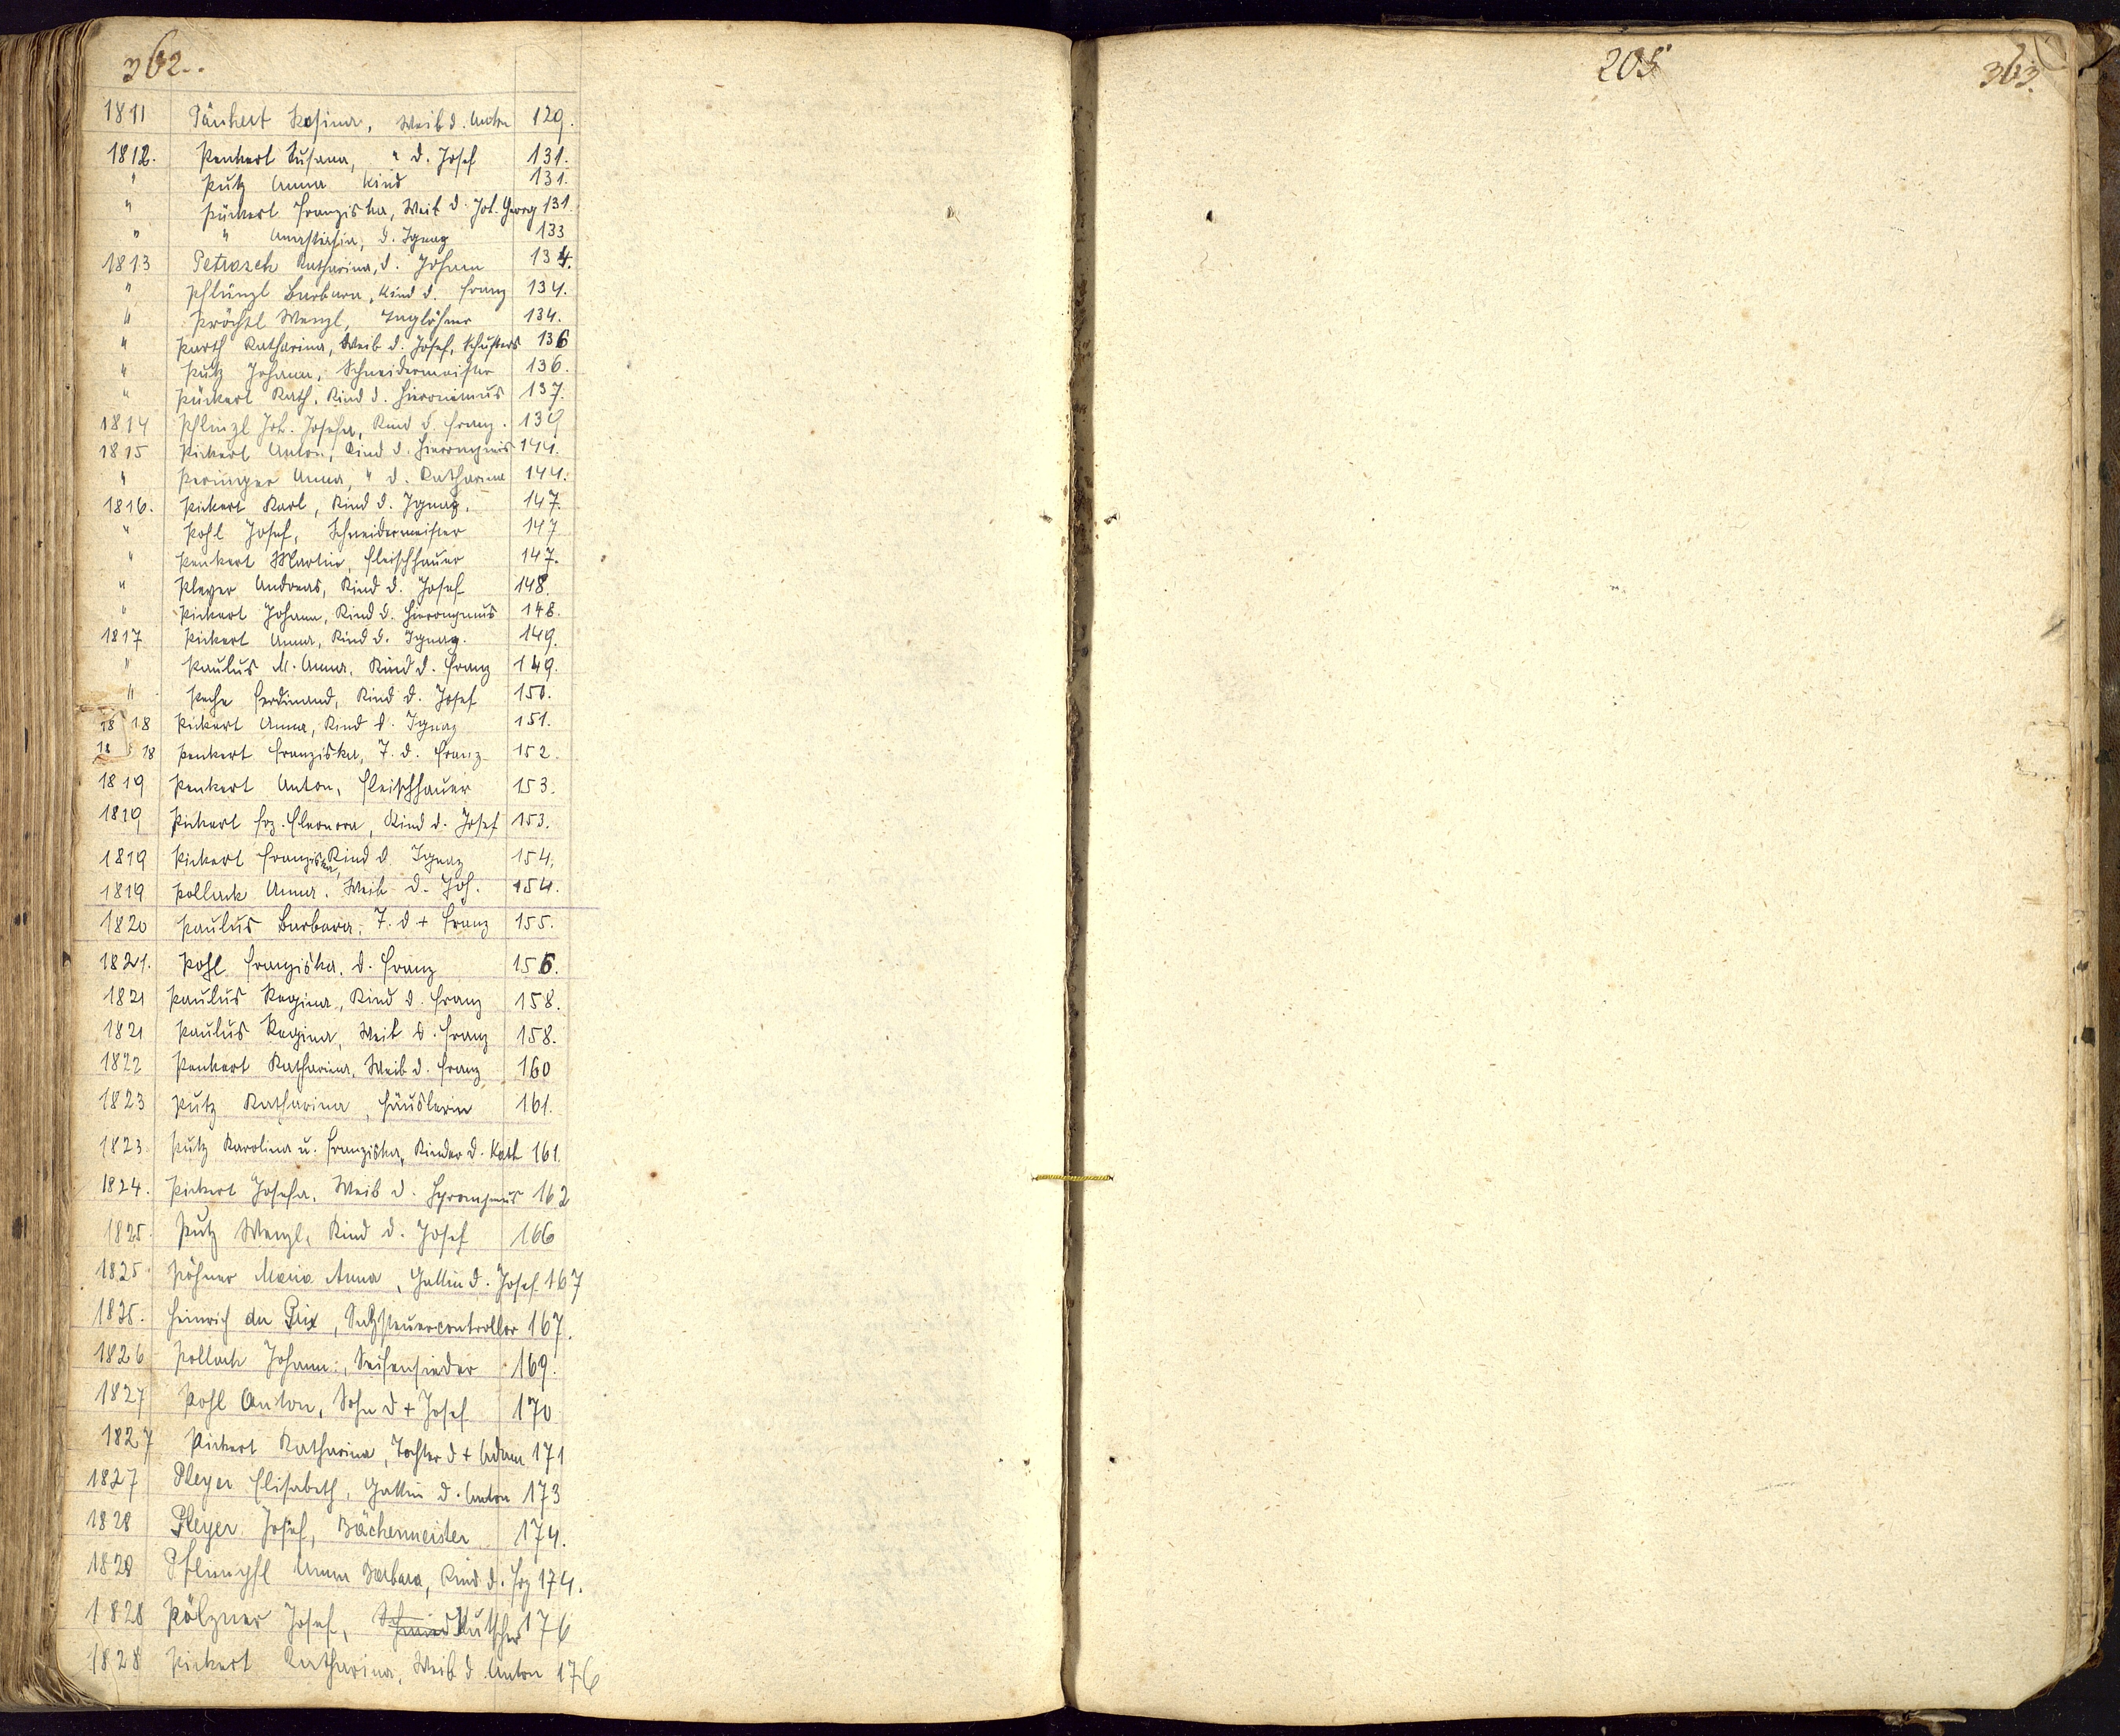 362..
1811 Päukert Rosina, Weib d. Anton 129.
1812. Peukert Susana, " d. Josef 131.
" Putz Anna Kind 131.
" Pückert Franziska, Weib d. Joh. Georg 131.
" " Anastasia, d. Ignaz 133
1813 Petrasch Katharina, d. Johann 134.
" Pflünzl Barbara, Kind d. Franz 134.
" Pröchtl Wenzl, Taglöhner 134.
" Parth Katharina, Weib d. Josef, Schusters 136
" Putz Johann, Schneidermeister 136.
" Pückert Kath. Kind d. Hieronimus 137.
1814 Pflinzl Joh. Josefa, Kind d. Franz. 139
1815 Pickert Anton, Kind d. Hieronymus 144.
" Peringer Anna, " d. Katharina 144.
1816. Pickert Karl, Kind d. Ignaz. 147.
" Pohl Josef, Schneidermeister 147
" Peukert Martin, Fleischhauer 147.
" Pleyer Andreas, Kind d. Josef 148.
" Pickert Johann, Kind d. Hieronymus 148.
1817 Pickert Anna, Kind d. Ignaz. 149.
" Paulus M. Anna, Kind d. Franz 149.
" Peche Ferdinand, Kind d. Josef 150.
1818 Pickert Anna, Kind d. Ignaz 151.
1818 Peukert Franziska, T. d. Franz 152.
1819 Peukert Anton, Fleischhauer 153.
1819 Pickert Frz. Eleonora, Kind d. Josef 153.
1819 Pickert Franziska, Kind d. Ignaz 154.
1819 Pollack Anna. Weib d. Joh. 154.
1820 Paulus Barbara, T. d + Franz 155.
1821. Pohl Franziska. d. Franz 156.
1821 Paulus Regina, Kind d. Franz 158.
1821 Paulus Regina, Weib d. Franz 158.
1822 Peukert Katharina, Weib d. Franz 160
1823 Putz Katharina, Häuslerin 161.
1823. Putz Karolina u. Franziska, Kinder d. Kath 161.
1824. Pickert Josefa, Weib d. Hyronymus 162
1825. Putz Wenzl, Kind d. Josef 166
1825. Pöhner Maria Anna, Gattin d. Josef 167
1825. Heinrich du Prix, Salzsteuercontrollor 167.
1826 Pollack Johann, Seifensieder 169.
1827 Pohl Anton, Sohn d + Josef 170
1827 Pickert Katharina, Tochter d + Adam 171
1827 Pleyer Elisabeth, Gattin d. Anton 173
1828 Pleyer Josef, Bäckermeister 174.
1828 Pflinzhl Anna Barbara, Kind d. Frz 174.
1828 Pölzner Josef, Schmied Kutscher 176
1828 Pickert Katharina, Weib d. Anton 176
205
363.